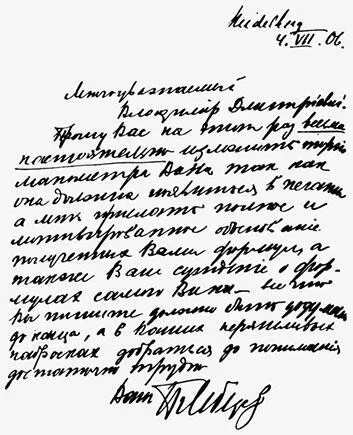 Heidelberg
4. VII. 06.
Многоуважаемый
Владимир Дмитриевич.
Прошу Вас на этот раз весьма
настоятельно изложить теорию
манометра Вина так как
она должна появиться в печати
а мне прислать полное и
мотивированное обоснование
полученных Вами формул, а
также Ваше суждение о фор-
мулах самого Вина — все что
Вы пишете должно быть додумано
до конца, а в Ваших торопливых
набросках добраться до понимания
достаточно трудно
Ваш П Лебедев